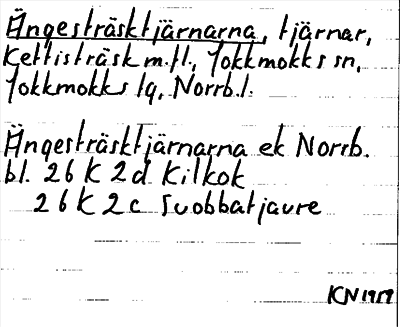 Ängesträsktjärnarna, tjärnar,
Kettisträsk m.fl., Jokkmokks sn,
Jokkmokks tg, Norrb.l.
Ängesträsktjärnarna ek Norrb.
bl. 26 K 2d Kilkok
26 K 2c Suobbatjaure
KN 1959